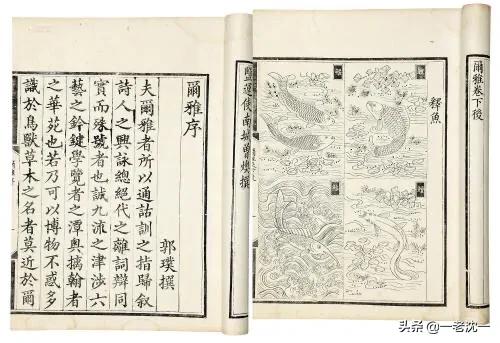 爾雅卷下後
釋魚
鹽運使南城曾燠撰
爾雅序
郭璞撰
夫爾雅者所以通詁訓之指歸叙
詩人之興詠總絕代之離詞辯同
實而殊號者也誠九流之津涉六
藝之鈐鍵學覽者之潭奧摛翰者
之華苑也若乃可以博物不惑多
識於鳥獸草木之名者莫近於爾
头条 @一老沈一